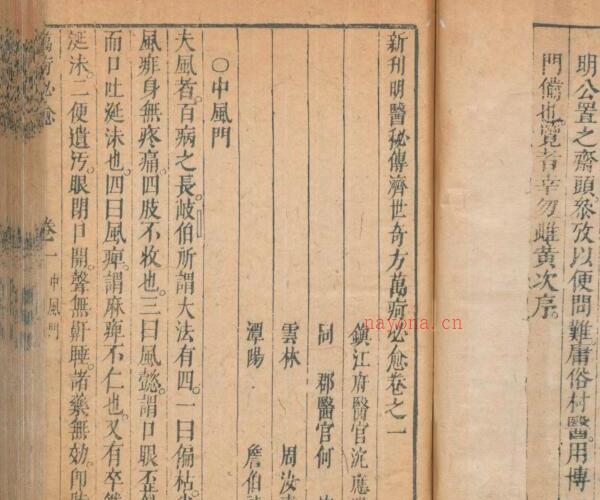 明公置之齋頭參攷以便問難庸俗村醫用傳
門備也覽者幸勿雌黃次序
新刊明醫秘傳濟世奇方萬病必愈卷之一
鎮江府醫官沈應
同 郡醫官何
雲林 周汝
潭陽 詹伯
○中風門
夫風者百病之長岐伯所謂大法有四一曰偏枯
風痱身無疼痛四肢不收也三曰風懿謂口眼歪
而口吐涎沫也四曰風痺謂麻痺不仁也又有卒然
涎沫二便遺汚眼閉口開聲無鼾睡諸藥無効卽
萬病必愈 卷一 中風門
nayona.cn